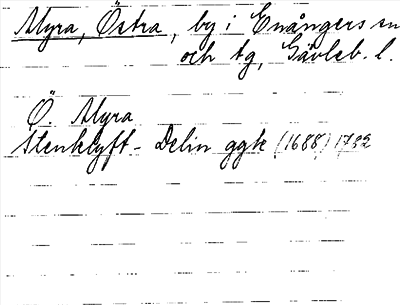 Myra, Östra, by i Enångers sn
och tg, Gävleb. l.
Ö. Myra
Stenklyft - Delin ggk (1688) 1732